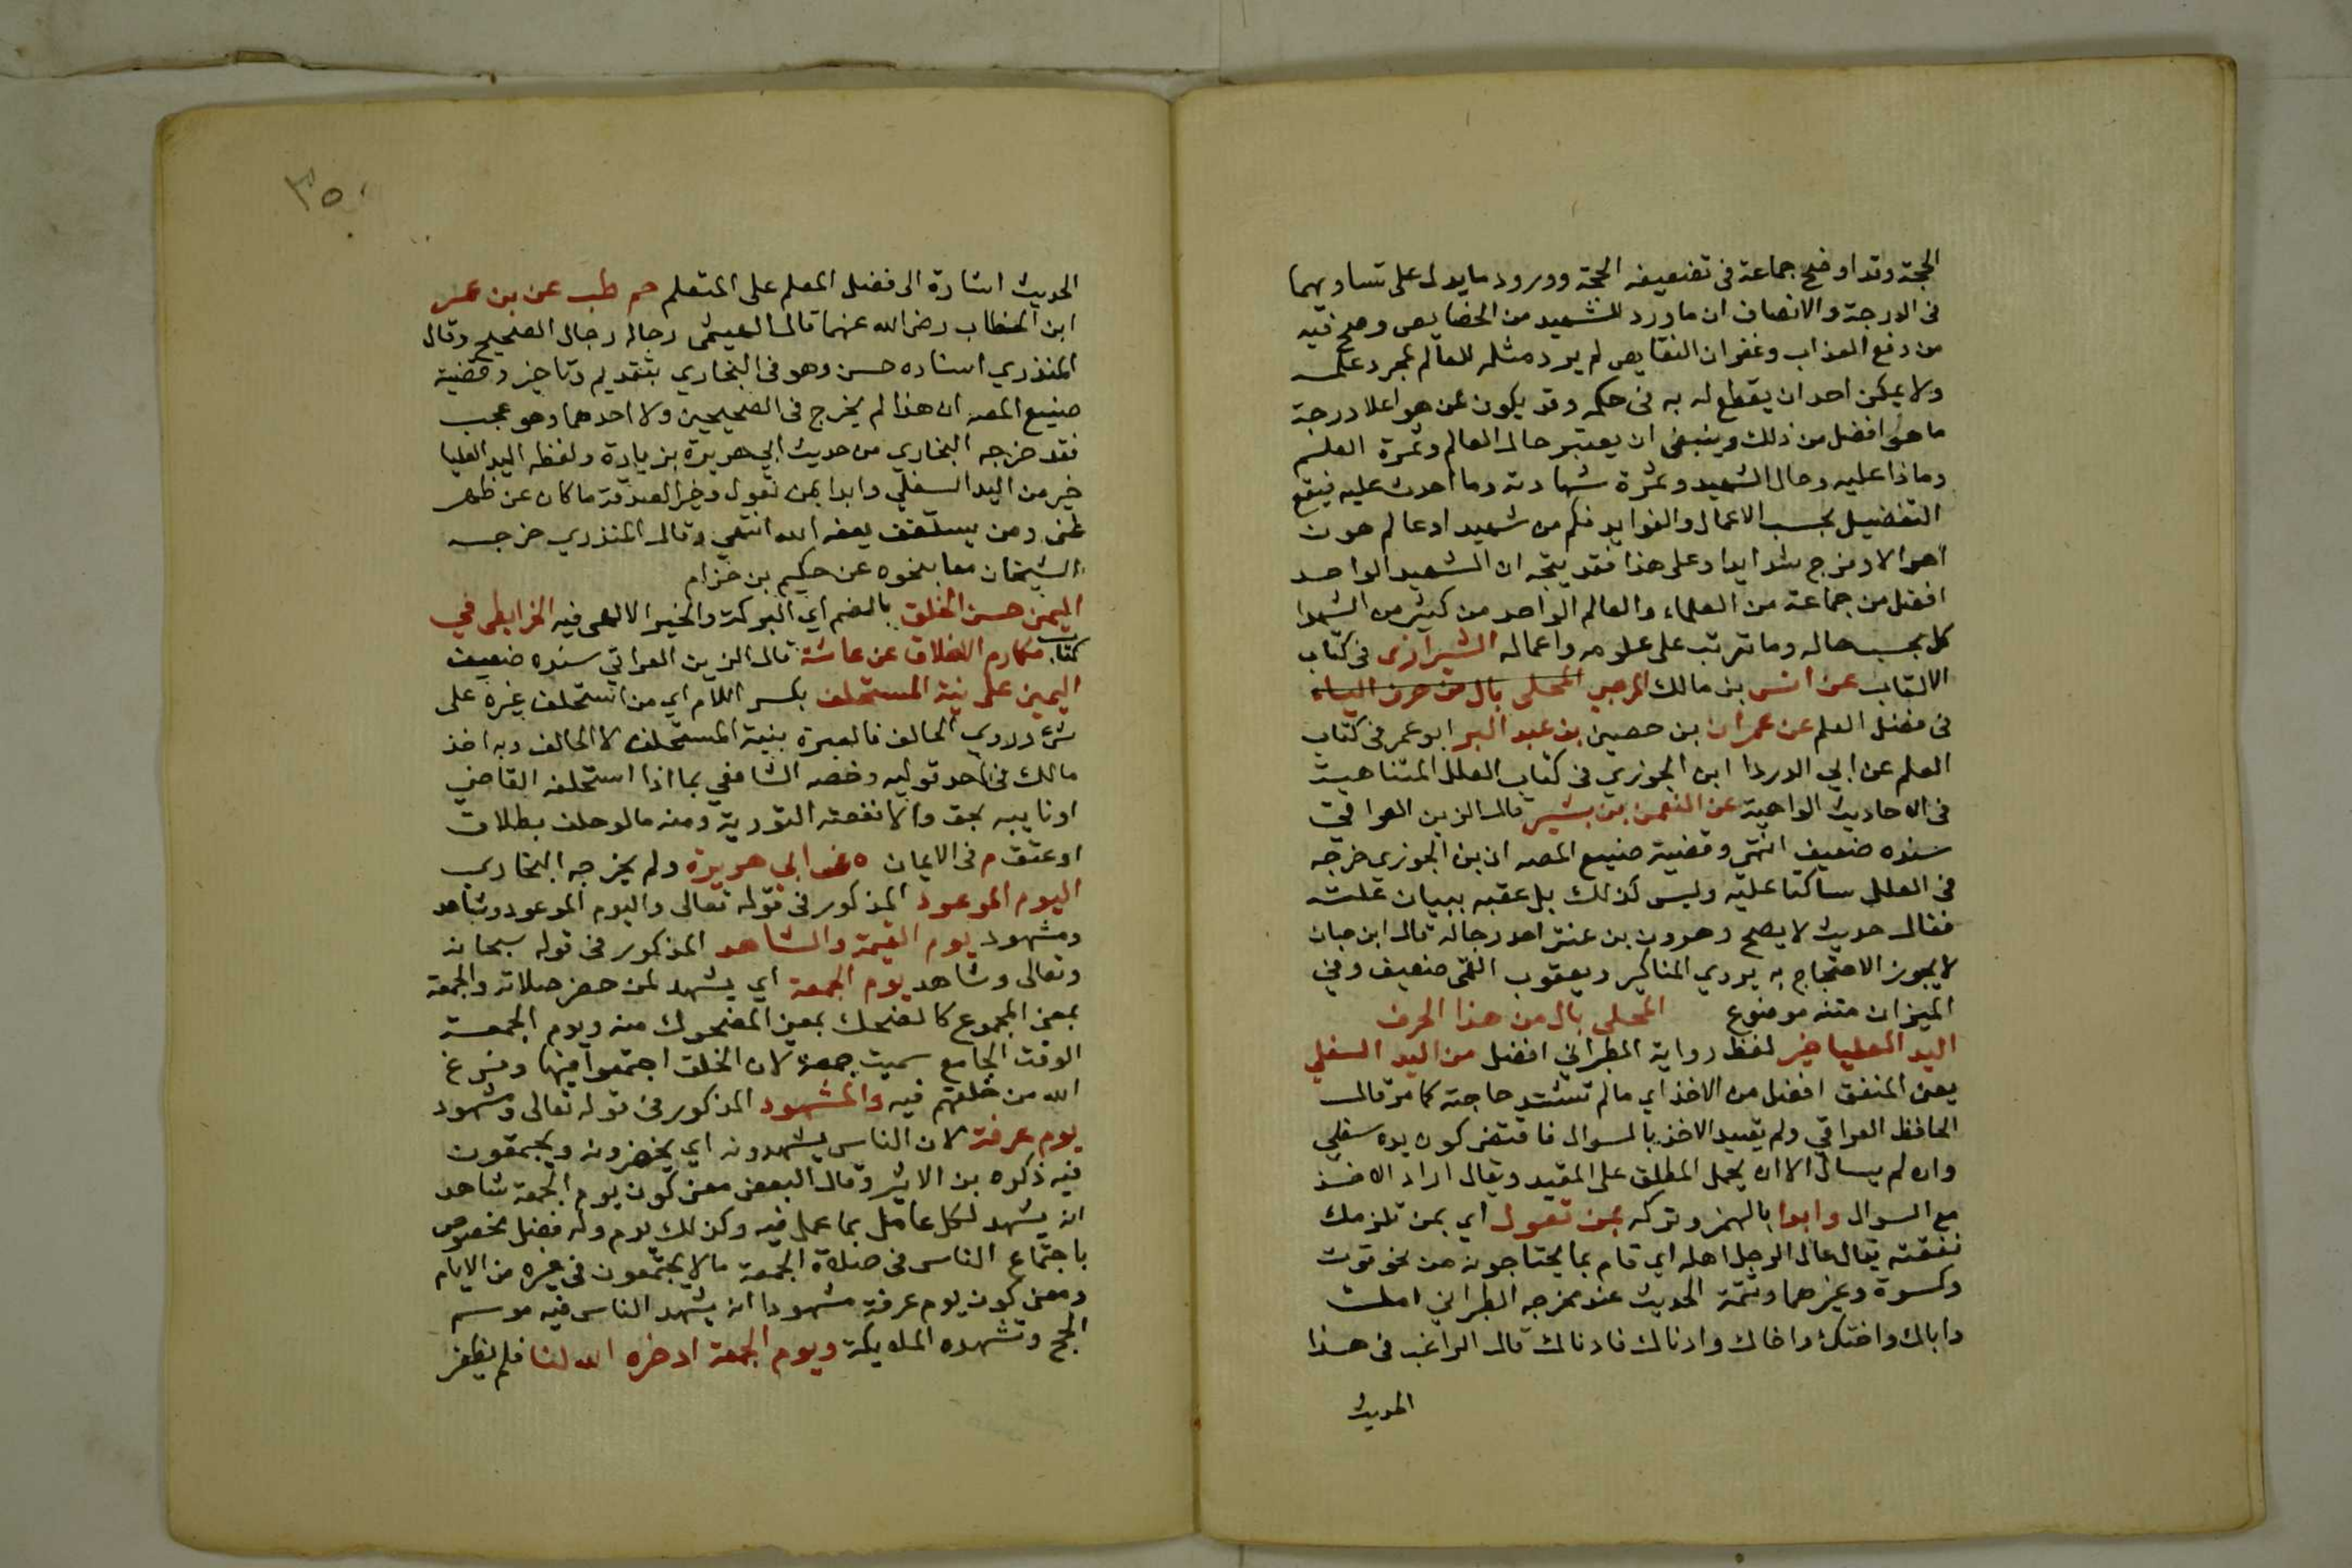 الحجة وقد اوضح جماعة في تضعيف الحجة وورود ما يدل على تساويهما
في الدرجة والانصاف ان ما ورد للشهيد من الخصايص وصح فيه
من دفع العذاب وغفران النقايص لم يرد مثله للعالم لمجرد علمه
ولا يمكن احد ان يقطع له به في حكمه وقد يكون لمن هو اعلا درجة
ما هو افضل من ذلك وينبغي ان يعتبر حال العالم وثمرة العلم
وماذا عليه وحال الشهيد وثمرة شهادته وما احدث عليه فيقع
التفضيل بحسب الاعمال والفوايد فكم من شهيد او عالم هون
اهوالا وفرج شدايدا وعلى هذا فقد يتجه ان الشهيد الواحد
افضل من جماعة من العلماء والعالم الواحد من كثير من الشهدا
كل بحسب حاله وما ترتب على علومه واعماله الشيرازي في كتاب
الالقاب عن انس بن مالك المرهبي المحلى بال من حرف الياء
في فضل العلم عن عمران ابن حصين بن عبد البر ابو عمر في كتاب
العلم عن ابي الدردا ابن الجوزي في كتاب العلل المتناهية
في الاحاديث الواهية عن النعمن بن بشير قال الزين العراقي
سنده ضعيف انتهى وقضية صنيع المصه ان بن الجوزي خرجه
في العلل ساكتا عليه وليس كذلك بل عقبه ببيان علته
فقال حديث لا يصح وهرون بن عنتر احد رجاله قال ابن حبان
لا يجوز الاحتجاج به يروي المناكير ويعقوب القمى ضعيف وفي
الميزان متنه موضوع المحلى بال من هذا الحرف
اليد العليا خير لفظ رواية الطبراني افضل من اليد السفلي
يعنى المنفق افضل من الاخذ اي ما لم تشتد حاجته كما مر قال
الحافظ العراقي ولم يقيد الاخذ بالسوال فاقتضى كون يده سفلي
وان لم يسال الا ان يحمل المطلق على المقيد ويقال اراد الاخذ
مع السوال وابدا بالهمز وتركه بمن تعول اي بمن تلزمك
نفقته يقال عال الرجل اهله اي قام بما يحتاجونه من نحو قوت
وكسوة وغيرهما وتتمة الحديث عند مخرجه الطبراني امك
واباك واختك واخاك وادناك فادناك قال الراغب في هذا
الحديث
٣٥٠
الحديث اشارة الى فضل المعلم على المتعلم حم طب عن بن عمر
ابن الخطاب رضى الله عنهما قال الهيثمى رجاله رجال الصحيح وقال
المنذري اسناده حسن وهو في البخاري بتقديم وتاخير وقضية
صنيع المصه ان هذا لم يخرج في الصحيحين ولا احدهما وهو عجب
فقد خرجه البخاري من حديث ابي هريرة بزيادة ولفظه اليد العليا
خير من اليد السفلي وابدا بمن تعول وخير الصدقة ما كان عن ظهر
غنى ومن يستعفف يعفه الله انتهي وقال المنذري خرجه
الشيخان معا بنحوه عن حكيم بن حزام
اليمن حسن الخلق بالضم اي البركة والخير الالهى فيه الخرايطى في
كتاب مكارم الاخلاق عن عائشة قال الزين العراقي سنده ضعيف
اليمين على نية المستحلف بكسر اللام اي من استحلف غيره على
شئ وروري الحالف فالعبرة بنية المستحلف لا الحالف وبه اخذ
مالك في احد قوليه وخصه الشافعي بما اذا استحلفه القاضي
او نايبه بحق والا نفعته التورية ومنه ما لو حلف بطلاق
او عتق م في الايمان ه عن ابي هريرة ولم يخرجه البخاري
اليوم الموعود المذكور في قوله تعالى واليوم الموعود وشاهد
ومشهود يوم القيمة والشاهد المذكور في قوله سبحانه
وتعالى وشاهد يوم الجمعة اي يشهد لمن حضر صلاته والجمعة
بمعنى المجموع كالضحك بمعنى المضحوك منه ويوم الجمعة
الوقت الجامع سميت جمعة لان الخلق اجتمعوا فيها وفرغ
الله من خلقهم فيه والمشهود المذكور في قوله تعالى ومشهود
يوم عرفة لان الناس يشهدونه اي يحضرونه ويجتمعون
فيه ذكره بن الاثير وقال البعض معنى كون يوم الجمعة شاهد
انه يشهد لكل عامل بما عمل فيه وكذلك يوم وله فضل مخصوص
باجتماع الناس في صلاة الجمعة ما لا يجتمعون في غيره من الايام
ومعنى كون يوم عرفة مشهودا انه يشهد الناس فيه موسم
الحج وتشهده الملايكة ويوم الجمعة ادخره الله لنا فلم يظفر